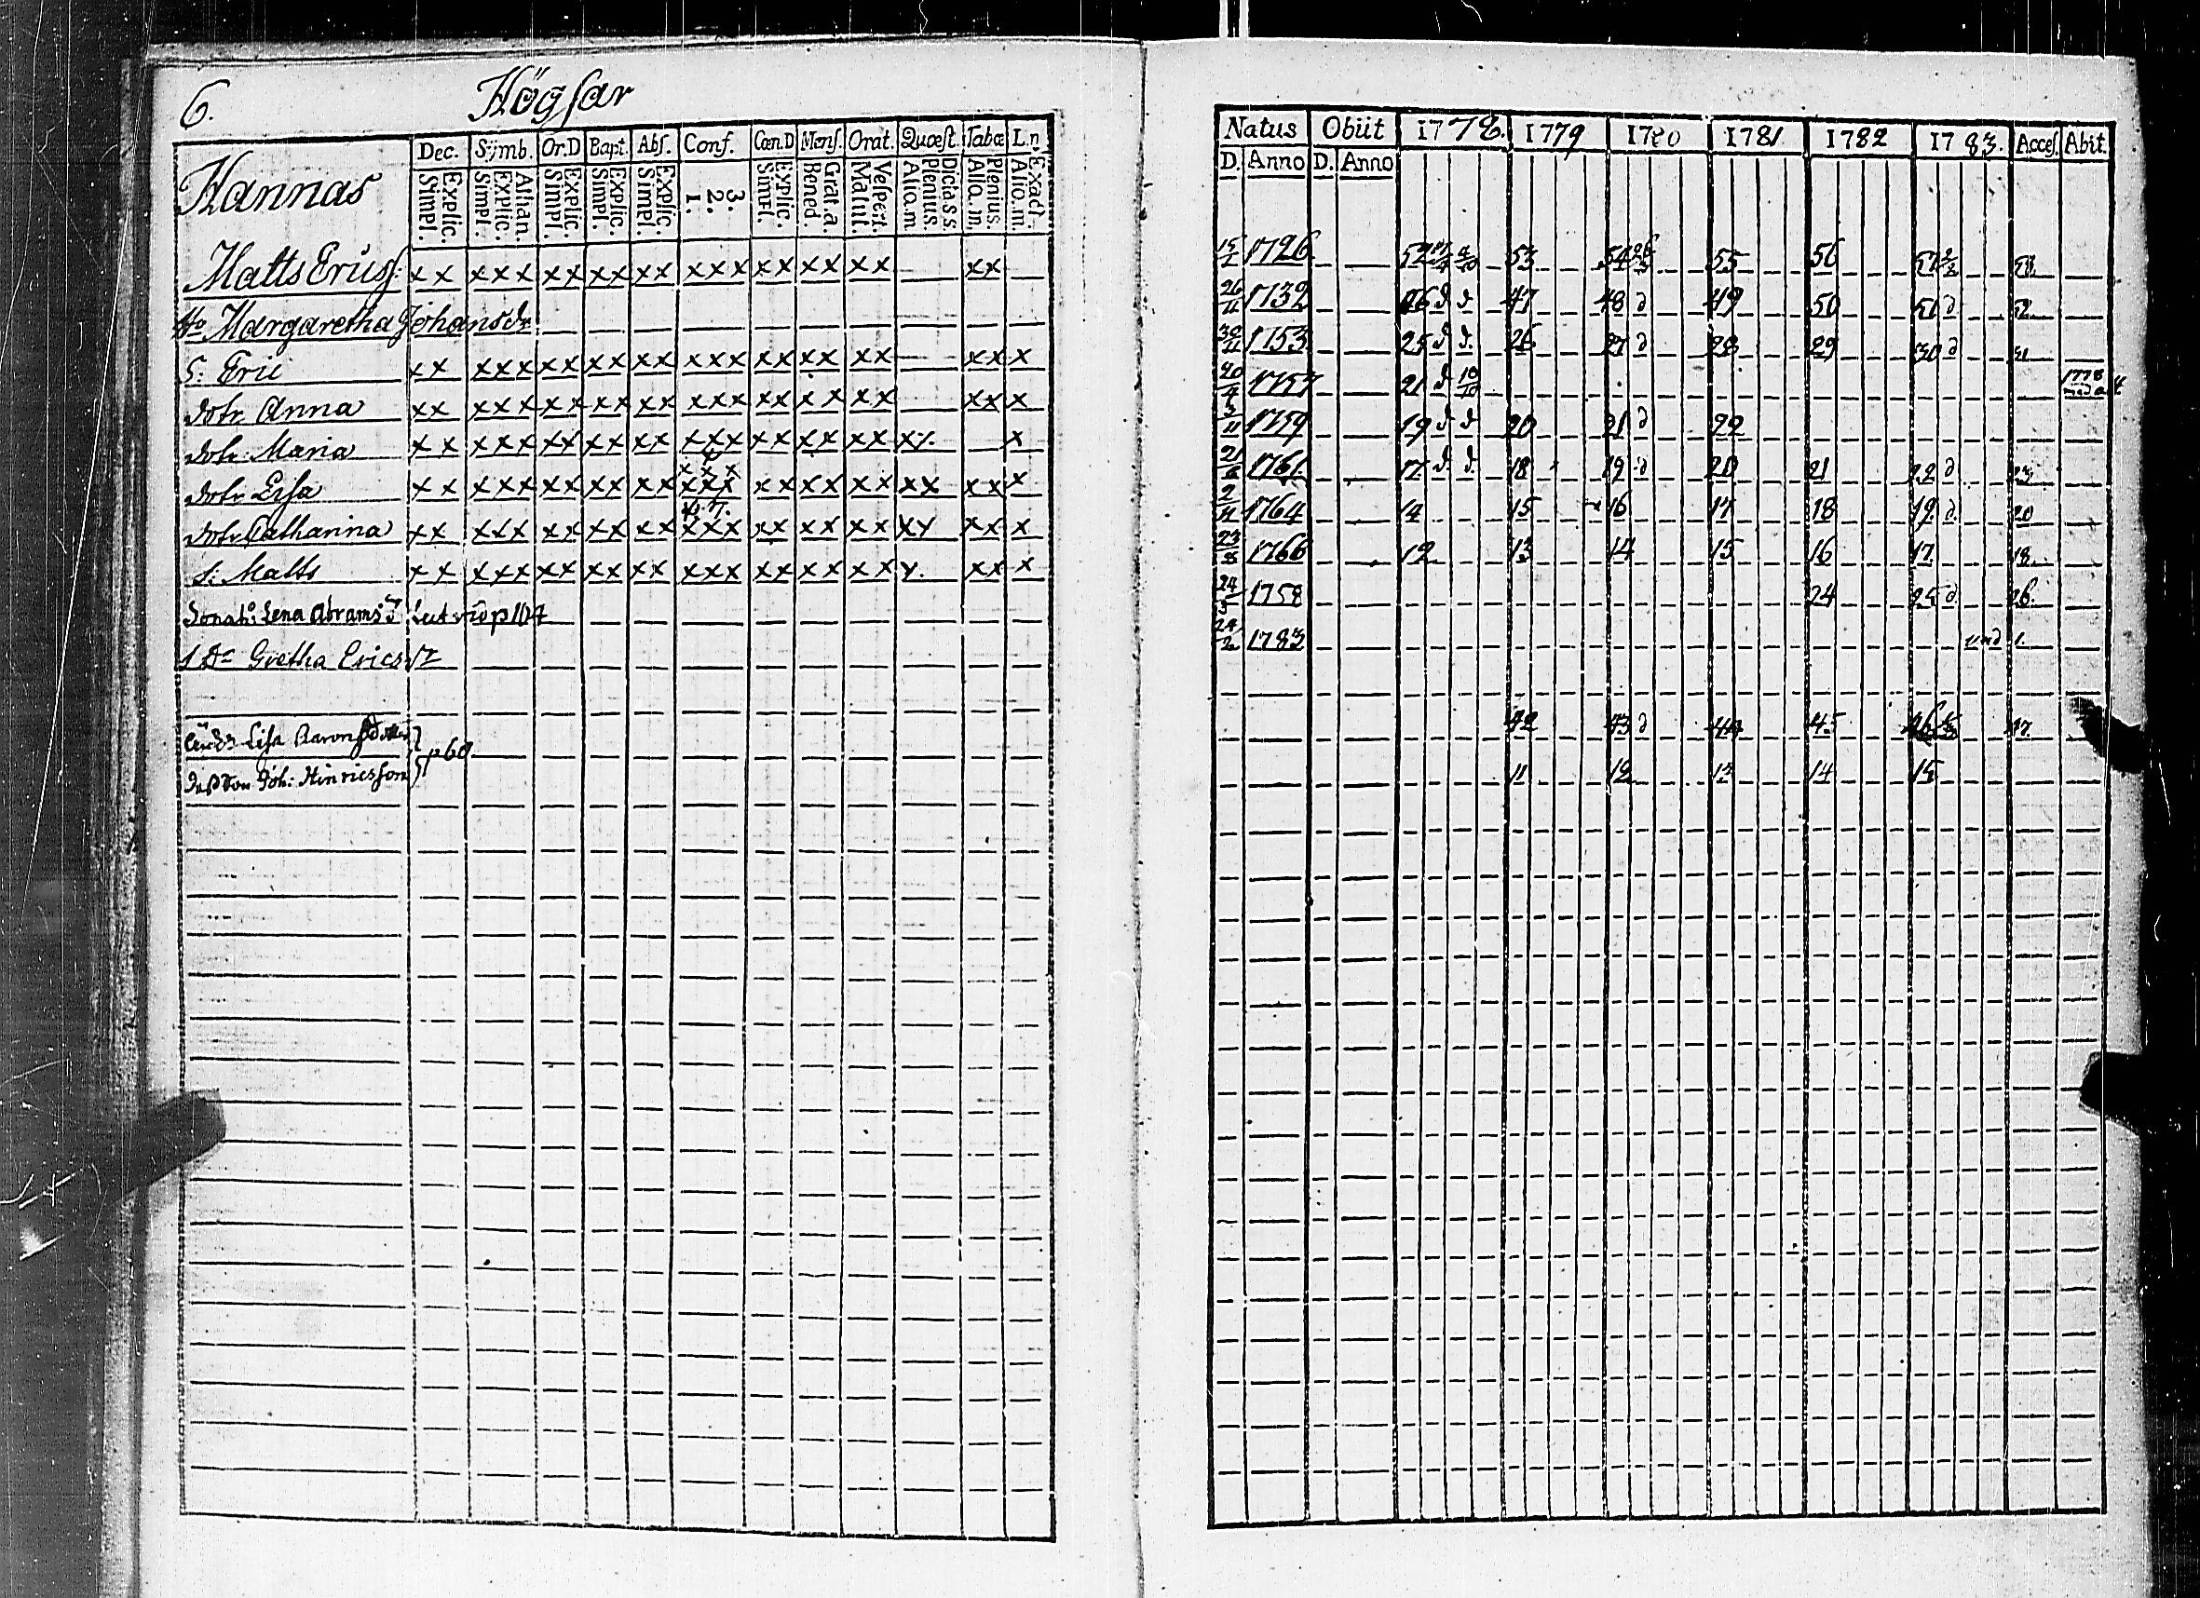 6. Högsar
Dec. Sÿmb. Or.D Bapt. Abs. Conf. Cæn.D Mens. Orat. Quœst. Tabœ L.n.
Explic. Simpl. Athan. Explic. Simpl. Explic. Simpl. Explic. Simpl. Explic. Simpl. 3. 2. 1. Explic. Simpl. Grat. a. Bened. Vespert. Matut. Dicta S.S. Plenius. Alio. m. Plenius. Alio. m. Exact. Alio. m.
Hannas
Matts Ericss: x x x x x x x x x x x x x x x x x x x x x x
Ho Margaretha Johansdr
S: Eric x x x x x x x x x x x x x x x x x x x x x x x
dotr Anna x x x x x x x x x x x x x x x x x x x x x x x
dotr Maria x x x x x x x x x x x x x x x x x x x x x x x
dotr Lisa x x x x x x x x x x x x x x x x x x x x x x x x x
dotr Catharina x x x x x x x x x x x x x x x x x x x x x x x x x
S: Matts x x x x x x x x x x x x x x x x x x x x x x x x
Sonah: Lena Abramsd p 104
Gretha Ericsdr
Lisa Aaronsdotter
Joh: Hinricsson p 60
Natus Obiit 1778. 1779 1780 1781 1782 1783. Acces. Abit.
D. Anno D. Anno
1726 52 53 54 55 56 57 58
26/11 1732 46 d d 47 48 d 49 50 51 d 52
30/11 1153 25 d d. 26 27 d 28 29 30 d 31
20/4 1757 21 d 10/10 1778
3/11 1759 19 d d 20 21 d 22
21/6 1761 17 d. d. 18 19 d 20 21 22 d 23
2/11 1764 14 15 16 17 18 19 d. 20
23/8 1766 12 13 14 15 16 17 18
24/3 1758 24 25 d 26.
24/2 1783 1.
42 43 d 44 45 46 47
11 12 13 14 15